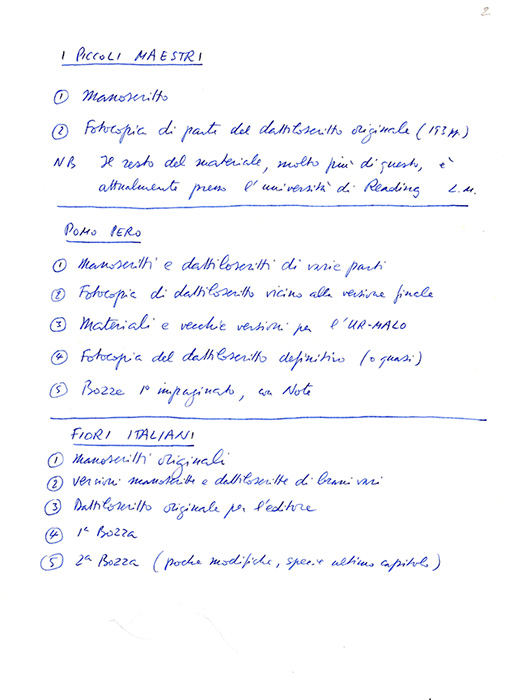 2
I PICCOLI MAESTRI
① Manoscritto
② Fotocopia di parte del dattiloscritto originale (193 pp.)
NB Il resto del materiale, molto più di questo, è
attualmente presso l'università di Reading L.M.
POMO PERO
① Manoscritti e dattiloscritti di varie parti
② Fotocopia di dattiloscritto vicino alla versione finale
③ Materiali e vecchie versioni per l'UR-MALO
④ Fotocopia del dattiloscritto definitivo (o quasi)
⑤ Bozze 1° impaginato, con Note
FIORI ITALIANI
① Manoscritti originali
② Versioni manoscritte e dattiloscritte di brani vari
③ Dattiloscritto originale per l'editore
④ 1ª Bozza
⑤ 2ª Bozza (poche modifiche, specie ultimo capitolo)